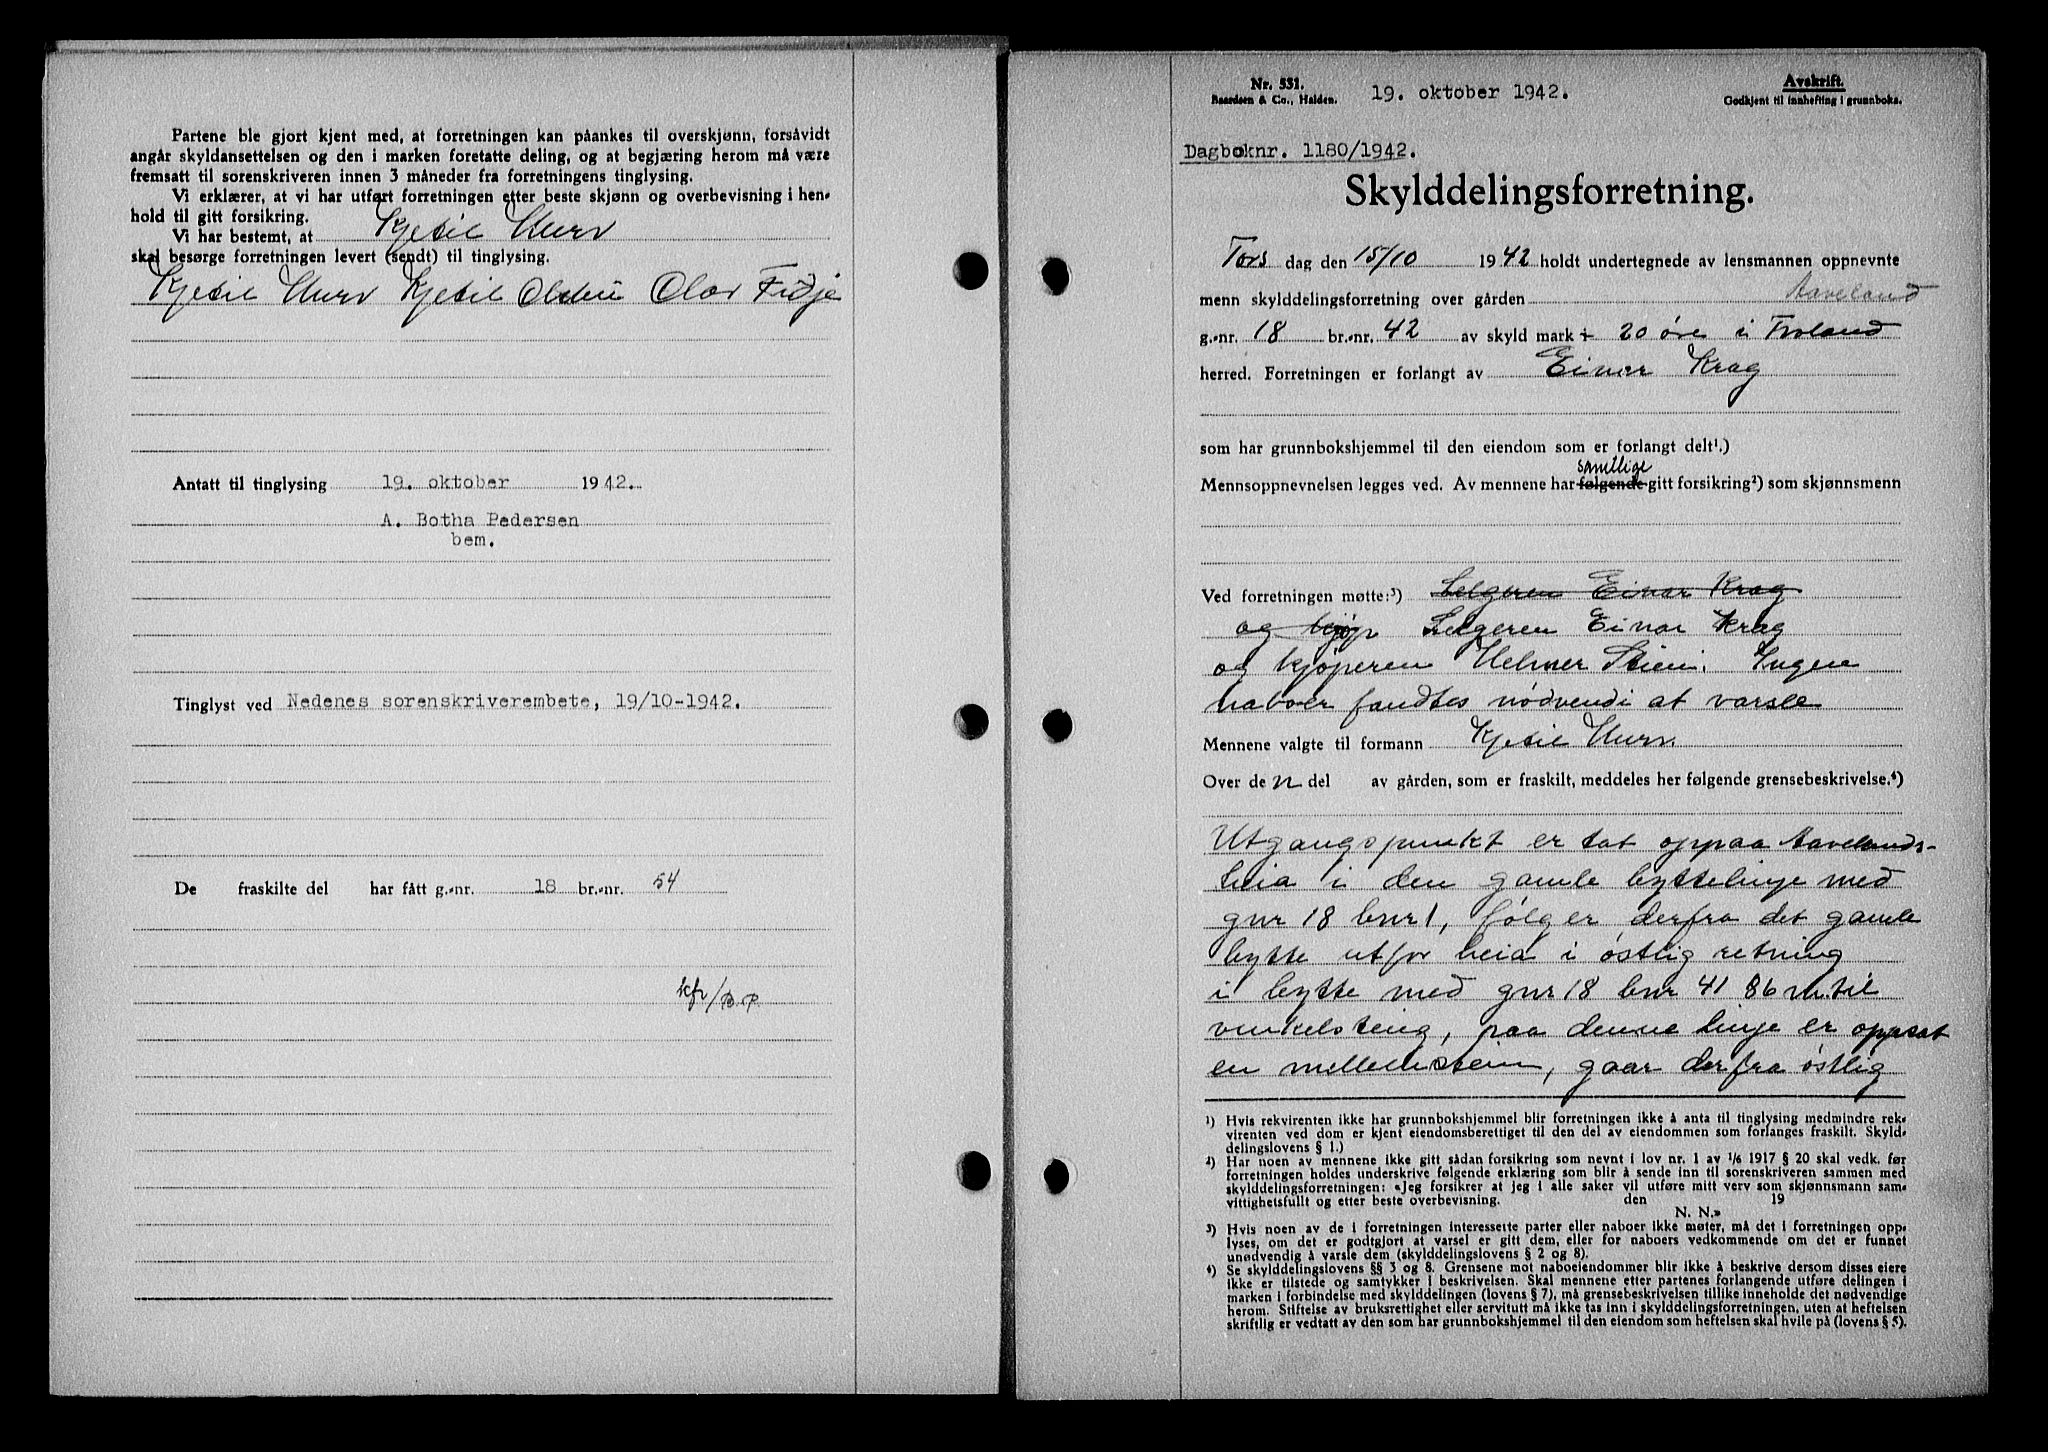 Partene ble gjort kjent med, at forretningen kan påankes til overskjønn, forsåvidt
angår skyldansettelsen og den i marken foretatte deling, og at begjæring herom må være
fremsatt til sorenskriveren innen 3 måneder fra forretningens tinglysing.
Vi erklærer, at vi har utført forretningen etter beste skjønn og overbevisning i hen-
hold til gitt forsikring.
Vi har bestemt, at Kjetil
skal besørge forretningen levert (sendt) til tinglysing.
Kjetil Kjetil Olav Fidje
Antatt til tinglysing 19. oktober 1942.
A. Botha Pedersen
bem.
Tinglyst ved Nedenes sorenskriverembete, 19/10-1942.
De fraskilte del har fått g.-nr. 18 br.-nr. 54
kfr/B.P.
Nr. 531.
Baardsen & Co., Halden.
19. oktober 1942.
Avskrift.
Godkjent til innhefting i grunnboka.
Dagboknr. 1180/1942.
Skylddelingsforretning.
Tors dag den 15/10 1942 holdt undertegnede av lensmannen oppnevnte
menn skylddelingsforretning over gården Aaveland
g.-nr. 18 br.-nr. 42 av skyld mark 20 øre i Froland
herred. Forretningen er forlangt av Einar Krag
som har grunnbokshjemmel til den eiendom som er forlangt delt¹.)
samtlige
Mennsoppnevnelsen legges ved. Av mennene har følgende gitt forsikring²) som skjønnsmenn
Ved forretningen møtte:³) Selgeren Einar Krag
og kjøp Selgeren Einar Krag
og kjøperen Helmer Ingen
naboer fandtes nødvendi at varsle
Mennene valgte til formann Kjetil
Over de n del av gården, som er fraskilt, meddeles her følgende grensebeskrivelse.⁴)
Utgangspunkt er tat oppaa Aavelands-
heia i den gamle byttelinje med
gnr 18 bnr 1, følger derfra det gamle
bytte utfor heia i østlig retning
i bytte med gnr 18 bnr 41 86 m. til
vinkelsteing, paa denne linje er oppsat
en mellemstein, gaar derfra østlig
¹) Hvis rekvirenten ikke har grunnbokshjemmel blir forretningen ikke å anta til tinglysing medmindre rek-
virenten ved dom er kjent eiendomsberettiget til den del av eiendommen som forlanges fraskilt. Skyld-
delingslovens § 1.)
²) Har noen av mennene ikke gitt sådan forsikring som nevnt i lov nr. 1 av 1/6 1917 § 20 skal vedk. før
forretningen holdes underskrive følgende erklæring som blir å sende inn til sorenskriveren sammen med
skylddelingsforretningen: «Jeg forsikrer at jeg i alle saker vil utføre mitt verv som skjønnsmann sam-
vittighetsfullt og etter beste overbevisning. den 19
N. N.»
³) Hvis noen av de i forretningen interesserte parter eller naboer ikke møter, må det i forretningen opp-
lyses, om det er godtgjort at varsel er gitt dem, eller for naboers vedkommende om det er funnet
unødvendig å varsle dem (skylddelingslovens § 2 og 8).
⁴) Se skylddelingslovens §§ 3 og 8. Grensene mot naboeiendommer blir ikke å beskrive dersom disses eiere
ikke er tilstede og samtykker i beskrivelsen. Skal mennene etter partenes forlangende utføre delingen i
marken i forbindelse med skylddelingen (lovens § 7), må grensebeskrivelsen tillike inneholde det nødvendige
herom. Stiftelse av bruksrettighet eller servitutt må ikke tas inn i skylddelingsforretningen, uten at heftelsen
skriftlig er vedtatt av den som har grunnbokshjemmel til den eiendom som heftelsen skal hvile på (lovens § 5).